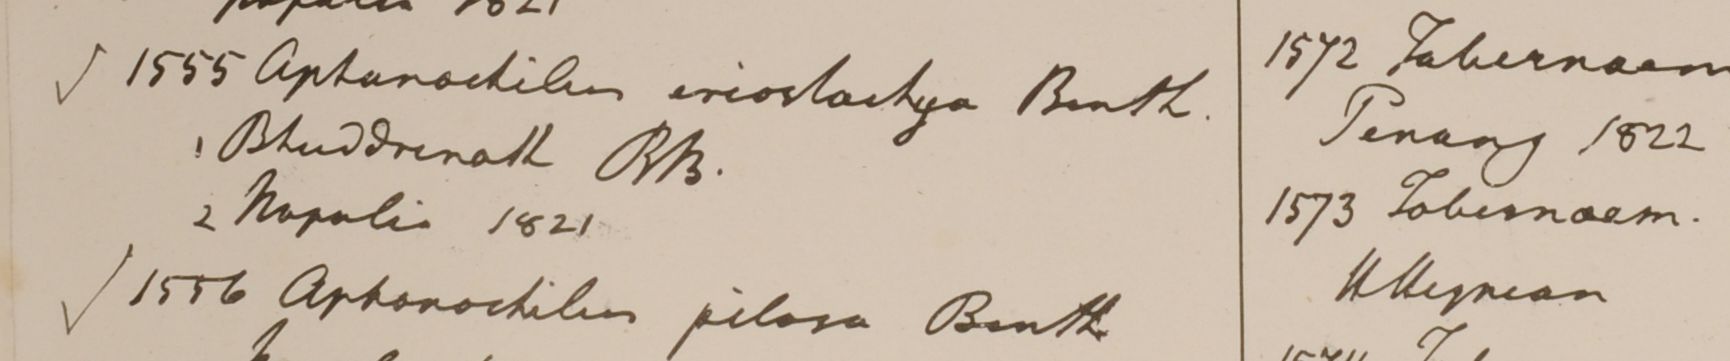 1821
√ 1555 Aphanochilus eriostachya Benth.
1 Bhuddrenath RB.
2 Napalia 1821
√ 1556 Aphanochilus pilosa Benth
1572 Tabernaem
Penang 1822
1573 Tabernaem.